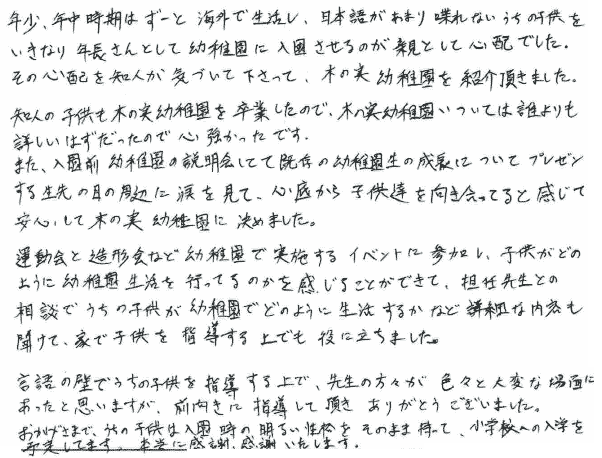 年少、年中時期は ずーと 海外で生活し、日本語があまり喋れないうちの子供を
いきなり 年長さんとして 幼稚園に入園させるのが親として心配でした。
その心配を知人が気づいて下さって、木の実幼稚園を紹介頂きました。
知人の子供も木の実幼稚園を卒業したので、木の実幼稚園いついては誰よりも
詳しいはずだったので心強かったです。
また、入園前幼稚園の説明会にてて既存の幼稚園生の成長についてプレゼン
する生先の目の周辺に涙を見て、心底から子供達を向き合ってると感じて
安心して木の実幼稚園に決めました。
運動会と造形会など幼稚園で実施するイベントに参加し、子供がどの
ように幼稚園生活を行ってるのかを感じることができて、担任先生との
相談でうちの子供が幼稚園でどのように生活するかなど詳細な内容も
聞けて、家で子供を指導する上でも役に立ちました。
言語の壁でうちの子供を指導する上で、先生の方々が色々と大変な場面に
あったと思いますが、前向きに指導して頂きありがとうございました。
おかげさまで、うちの子供は入園時の明るい性格をそのまま持って、小学校への入学を
予定してます。本当に感謝、感謝いたします。